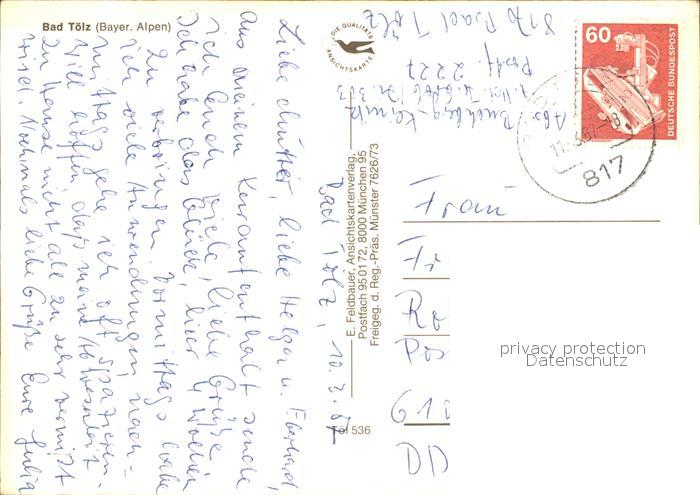 Bad Tölz (Bayer. Alpen)
DIE QUALITÄTS
ANSICHTSKARTE
8170 Bad Tölz
Postf. 2227
60
DEUTSCHE BUNDESPOST
817
Bad Tölz, 10.3.87
Liebe Mutter, liebe Helga u. Eberhard,
aus meinem Kuraufenthalt sende
ich Euch viele, liebe Grüße.
Ich habe das Glück, hier 4 Wochen
zu verbringen. Vormittags habe
ich viele Anwendungen, nach-
mittags gehe ich oft spazieren.
Will hoffen, daß meine Abwesenheit
zu Hause nicht all zu sehr vermißt
wird. Nochmals liebe Grüße Eure Julia
E. Feldbauer, Ansichtskartenverlag,
Postfach 95 01 72, 8000 München 95
Freigeg. d. Reg.-Präs. Münster 7626/73
Töl 536
Frau
Fr
Ro
Pos
610
DD
privacy protection
Datenschutz